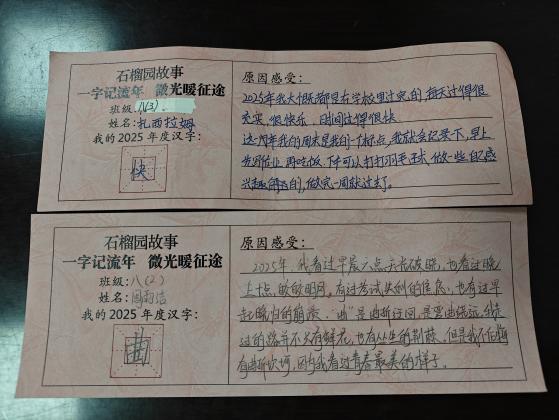 石榴园故事
一字记流年 微光暖征途
班级:八(3)
姓名:扎西拉姆
我的2025年度汉字:
快
原因感受:
2025年我大概都是在学校里过完的,每天过得很
充实,很快乐,时间过得很快
这一周年我的周末是我的一个标点,我就会记录下,早上
先写作业,再吃饭,下午可以打打羽毛球,做一些自己感
兴趣的,做完一周就过去了.
石榴园故事
一字记流年 微光暖征途
班级:八(2)
姓名:周
我的2025年度汉字:
曲
原因感受:
2025年,我看过早晨六点天光破晓,也看过晚
上十点皎皎明月。有过考试失利的焦虑,也有过早
起晚归的崩溃,"曲"是曲折迂回,是弯曲绕远,我走
过的路并不只有鲜花,也有丛生的荆棘,但是我不后悔
有曲折坎坷,因为我看过青春最美的样子。